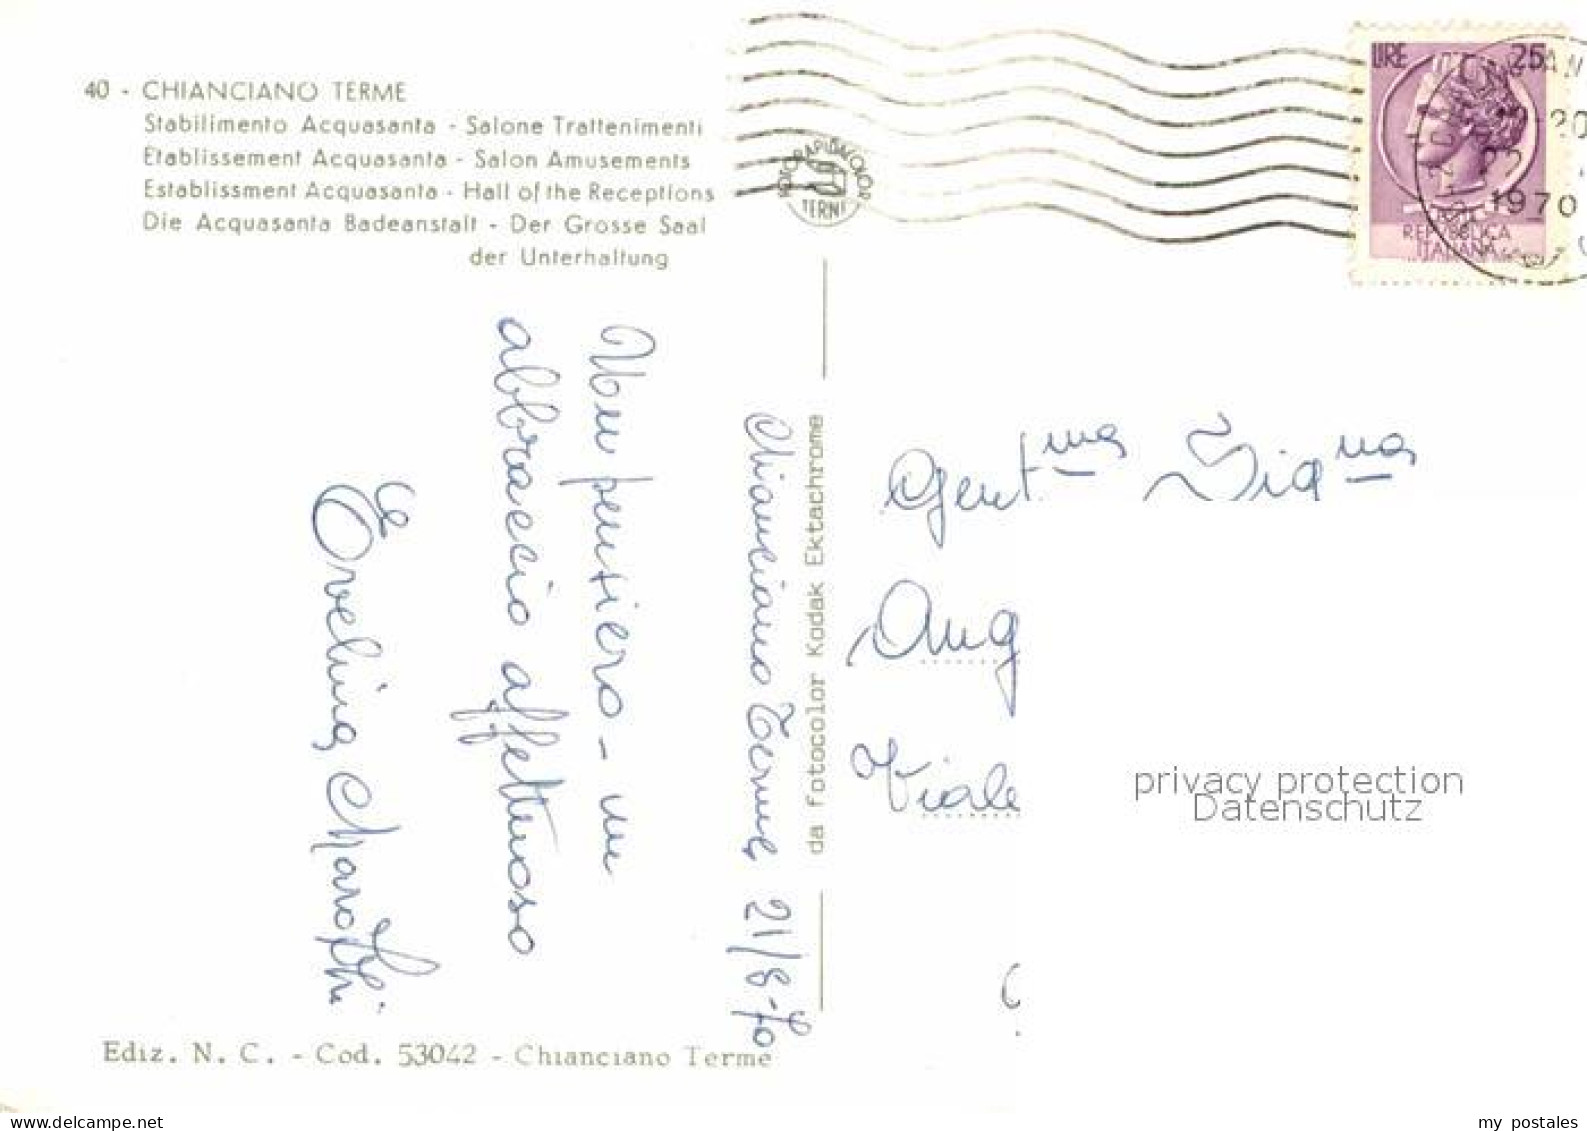 40 - CHIANCIANO TERME
Stabilimento Acquasanta - Salone Trattenimenti
Etablissement Acquasanta - Salon Amusements
Establissment Acquasanta - Hall of the Receptions
Die Acquasanta Badeanstalt - Der Grosse Saal
der Unterhaltung
FOTORAPIDACOLOR
TERNI
LIRE 25
1970
POSTE
REPUBBLICA
ITALIANA
Chianciano Terme, 21/8-70
Un pensiero - un
abbraccio affettuoso
Evelina
da fotocolor Kodak Ektachrome
Gent.ma Sig.na
Ang
Viale
privacy protection
Datenschutz
Ediz. N. C. - Cod. 53042 - Chianciano Terme
www.delcampe.net
my postales